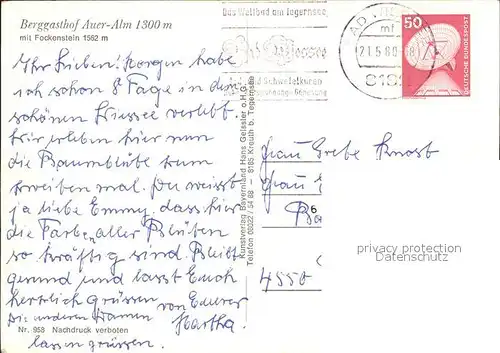 Berggasthof Auer-Alm 1300 m
mit Fockenstein 1562 m
Das Weltbad am Tegernsee
Bad Wiessee
21.5.80
50
DEUTSCHE BUNDESPOST
Ihr Lieben! Morgen habe
ich schon 8 Tage in dem
schönen Wiessee verlebt.
Wir erleben hier nun
die Baumblüte zum
zweiten mal. Du weisst
ja liebe Emmy, dass hier
die Farben aller Blüten
so kräftig sind. Bleibt
gesund und lasst Euch
herzlich grüssen
von Eurer
Martha.
Die anderen Damen
lassen grüssen.
Nr. 958 Nachdruck verboten
Kunstverlag Bayernland Hans Geissler o.H.G.
8185 Kreuth b. Tegernsee
Frau Grete Knost
Frau
4550
privacy protection
Datenschutz